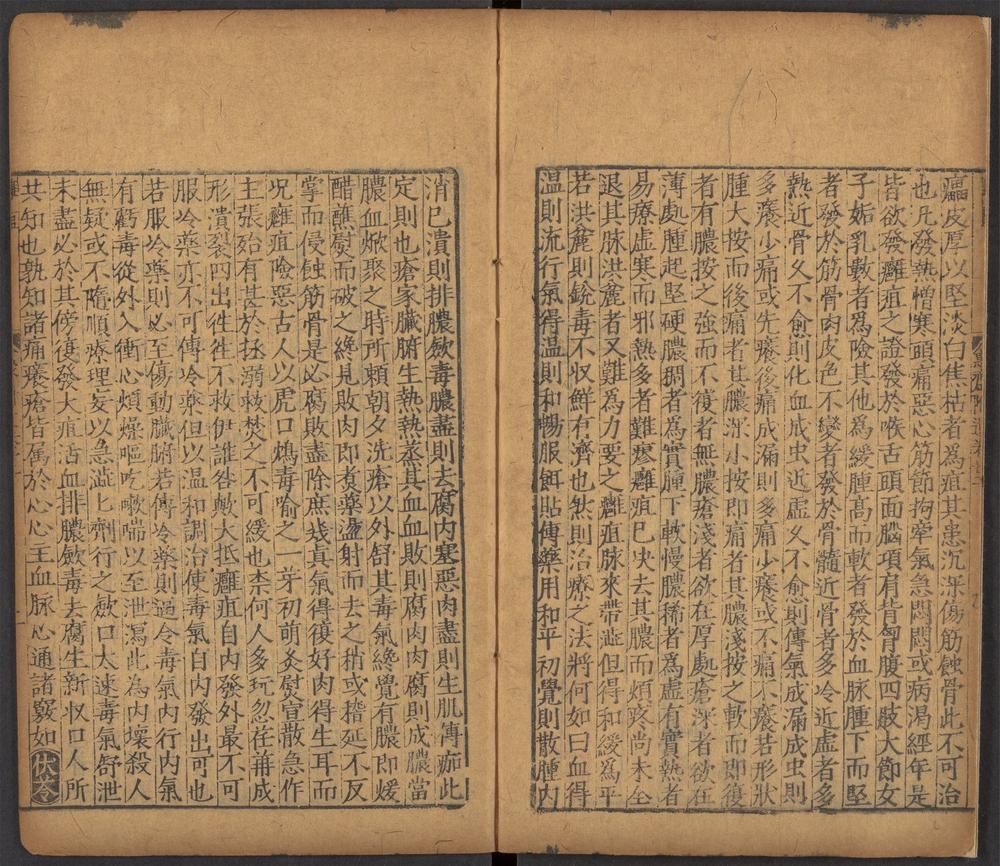 癰皮厚以堅淡白焦枯者為疽其患沉深傷筋蝕骨此不可治
也凡發熱憎寒頭痛惡心筋節拘牽氣急悶悶或病渴經年是
皆欲發癰疽之證發於喉舌頭面腦項肩背胷腹四肢大節女
子妬乳數者爲險其他為緩腫高而軟者發於血脉腫下而堅
者發於筋骨肉皮色不變者發於骨髓近骨者多冷近虛者多
熱近骨久不愈則化血成虫近虛久不愈則傳氣成漏成虫則
多癢少痛或先癢後痛成漏則多痛少癢或不痛不癢若形狀
腫大按而後痛者其膿深小按即痛者其膿淺按之軟而即復
者有膿按之強而不復者無膿瘡淺者欲在厚處瘡深者欲在
薄處腫起堅硬膿稠者為實腫下軟慢膿稀者為虛有實熱者
易療虛寒而邪熱多者難瘳癰疽已决去其膿而煩疼尚未全
退其脉洪麄者又難為力要之癰疽脉來帶澁但得和緩為平
若洪麄則銳毒不収鮮有濟也然則治療之法將何如曰血得
温則流行氣得温則和暢服餌貼傅藥用和平初覺則散腫内
消已潰則排膿歛毒膿盡則去腐内塞惡肉盡則生肌傅痂此
定則也瘡家臟腑生熱熱蒸其血血敗則腐肉肉腐則成膿當
膿血焮聚之時所賴朝夕洗瘡以外舒其毒氣纔覺有膿即煖
醋醮熨而破之纔見敗肉即煮藥盪射而去之稍或稽延不反
掌而侵蝕筋骨是必腐敗盡除庶㡬真氣得復好肉得生耳而
况癰疽險惡古人以虎口鴆毒喻之一芽初萌灸熨宣散急作
主張殆有甚於拯溺救焚之不可緩也柰何人多玩忽荏苒成
形潰裂四出徃徃不救伊誰咎歟大抵癰疽自内發外最不可
服冷藥亦不可傅冷藥但以温和調治使毒氣自内發出可也
若服冷藥則必至傷動臟腑若傅冷藥則遏令毒氣内行内氣
有虧毒從外入衝心煩燥嘔吃嗽喘以至泄瀉此為内壞殺人
無疑或不隋順療理妄以急澁匕劑行之歛口太速毒氣舒泄
未盡必於其傍復發大疽活血排膿歛毒去腐生新収口人所
共知也孰知諸痛癢瘡皆属於心心王血脉心通諸竅如茯苓